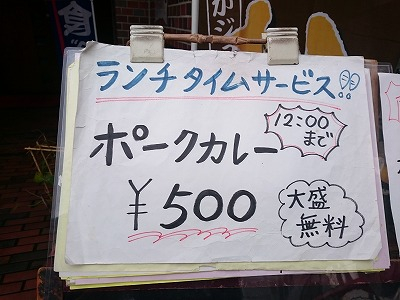 ランチタイムサービス!!
12:00
まで
ポークカレー
¥500
大盛
無料